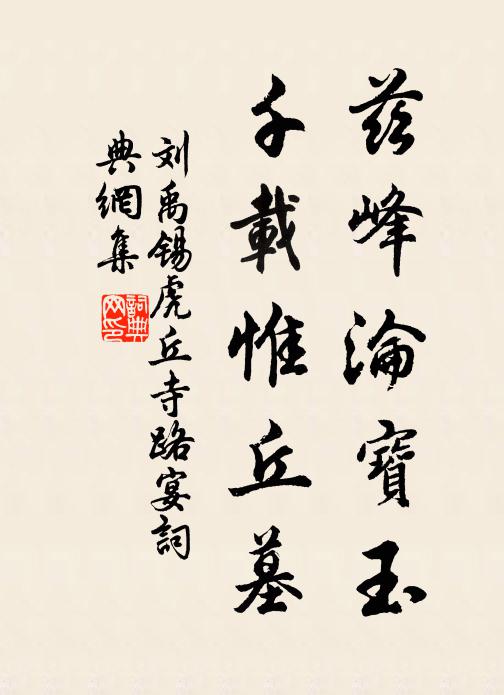 茲峰淪寶玉
千載惟丘墓
刘禹锡虎丘寺路宴詞
典網集
詞典网印